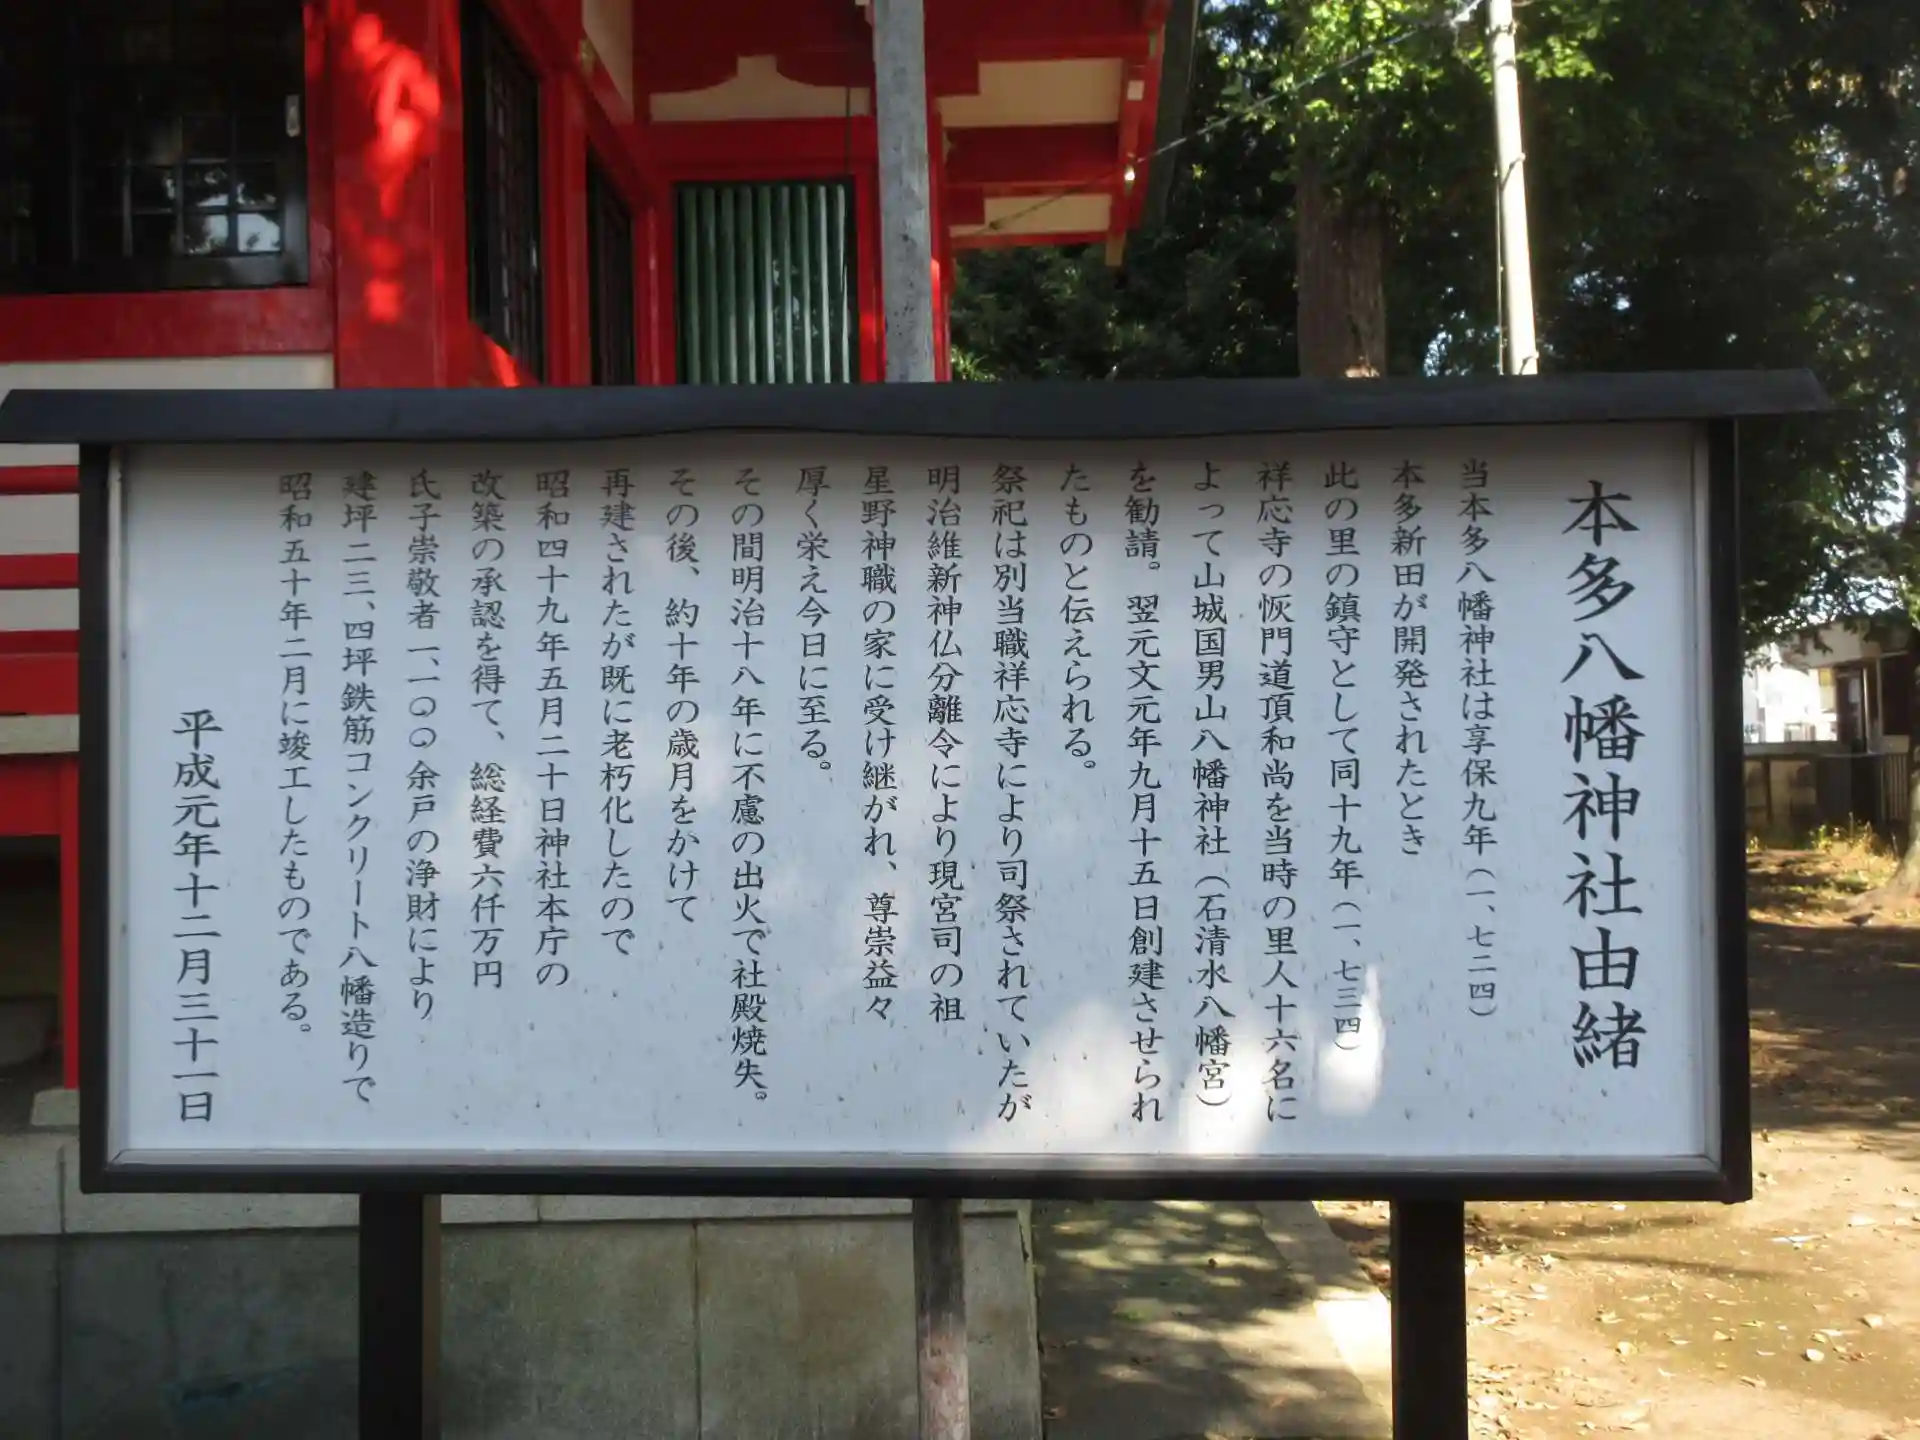 本多八幡神社由緒
当本多八幡神社は享保九年（一、七二四）
本多新田が開発されたとき
此の里の鎮守として同十九年（一、七三四）
祥応寺の恢門道頂和尚を当時の里人十六名に
よって山城国男山八幡神社（石清水八幡宮）
を勧請。翌元文元年九月十五日創建させられ
たものと伝えられる。
祭祀は別当職祥応寺により司祭されていたが
明治維新神仏分離令により現宮司の祖
星野神職の家に受け継がれ、尊崇益々
厚く栄え今日に至る。
その間明治十八年に不慮の出火で社殿焼失。
その後、約十年の歳月をかけて
再建されたが既に老朽化したので
昭和四十九年五月二十日神社本庁の
改築の承認を得て、総経費六仟万円
氏子崇敬者一、一〇〇余戸の浄財により
建坪二三、四坪鉄筋コンクリート八幡造りで
昭和五十年二月に竣工したものである。
平成元年十二月三十一日